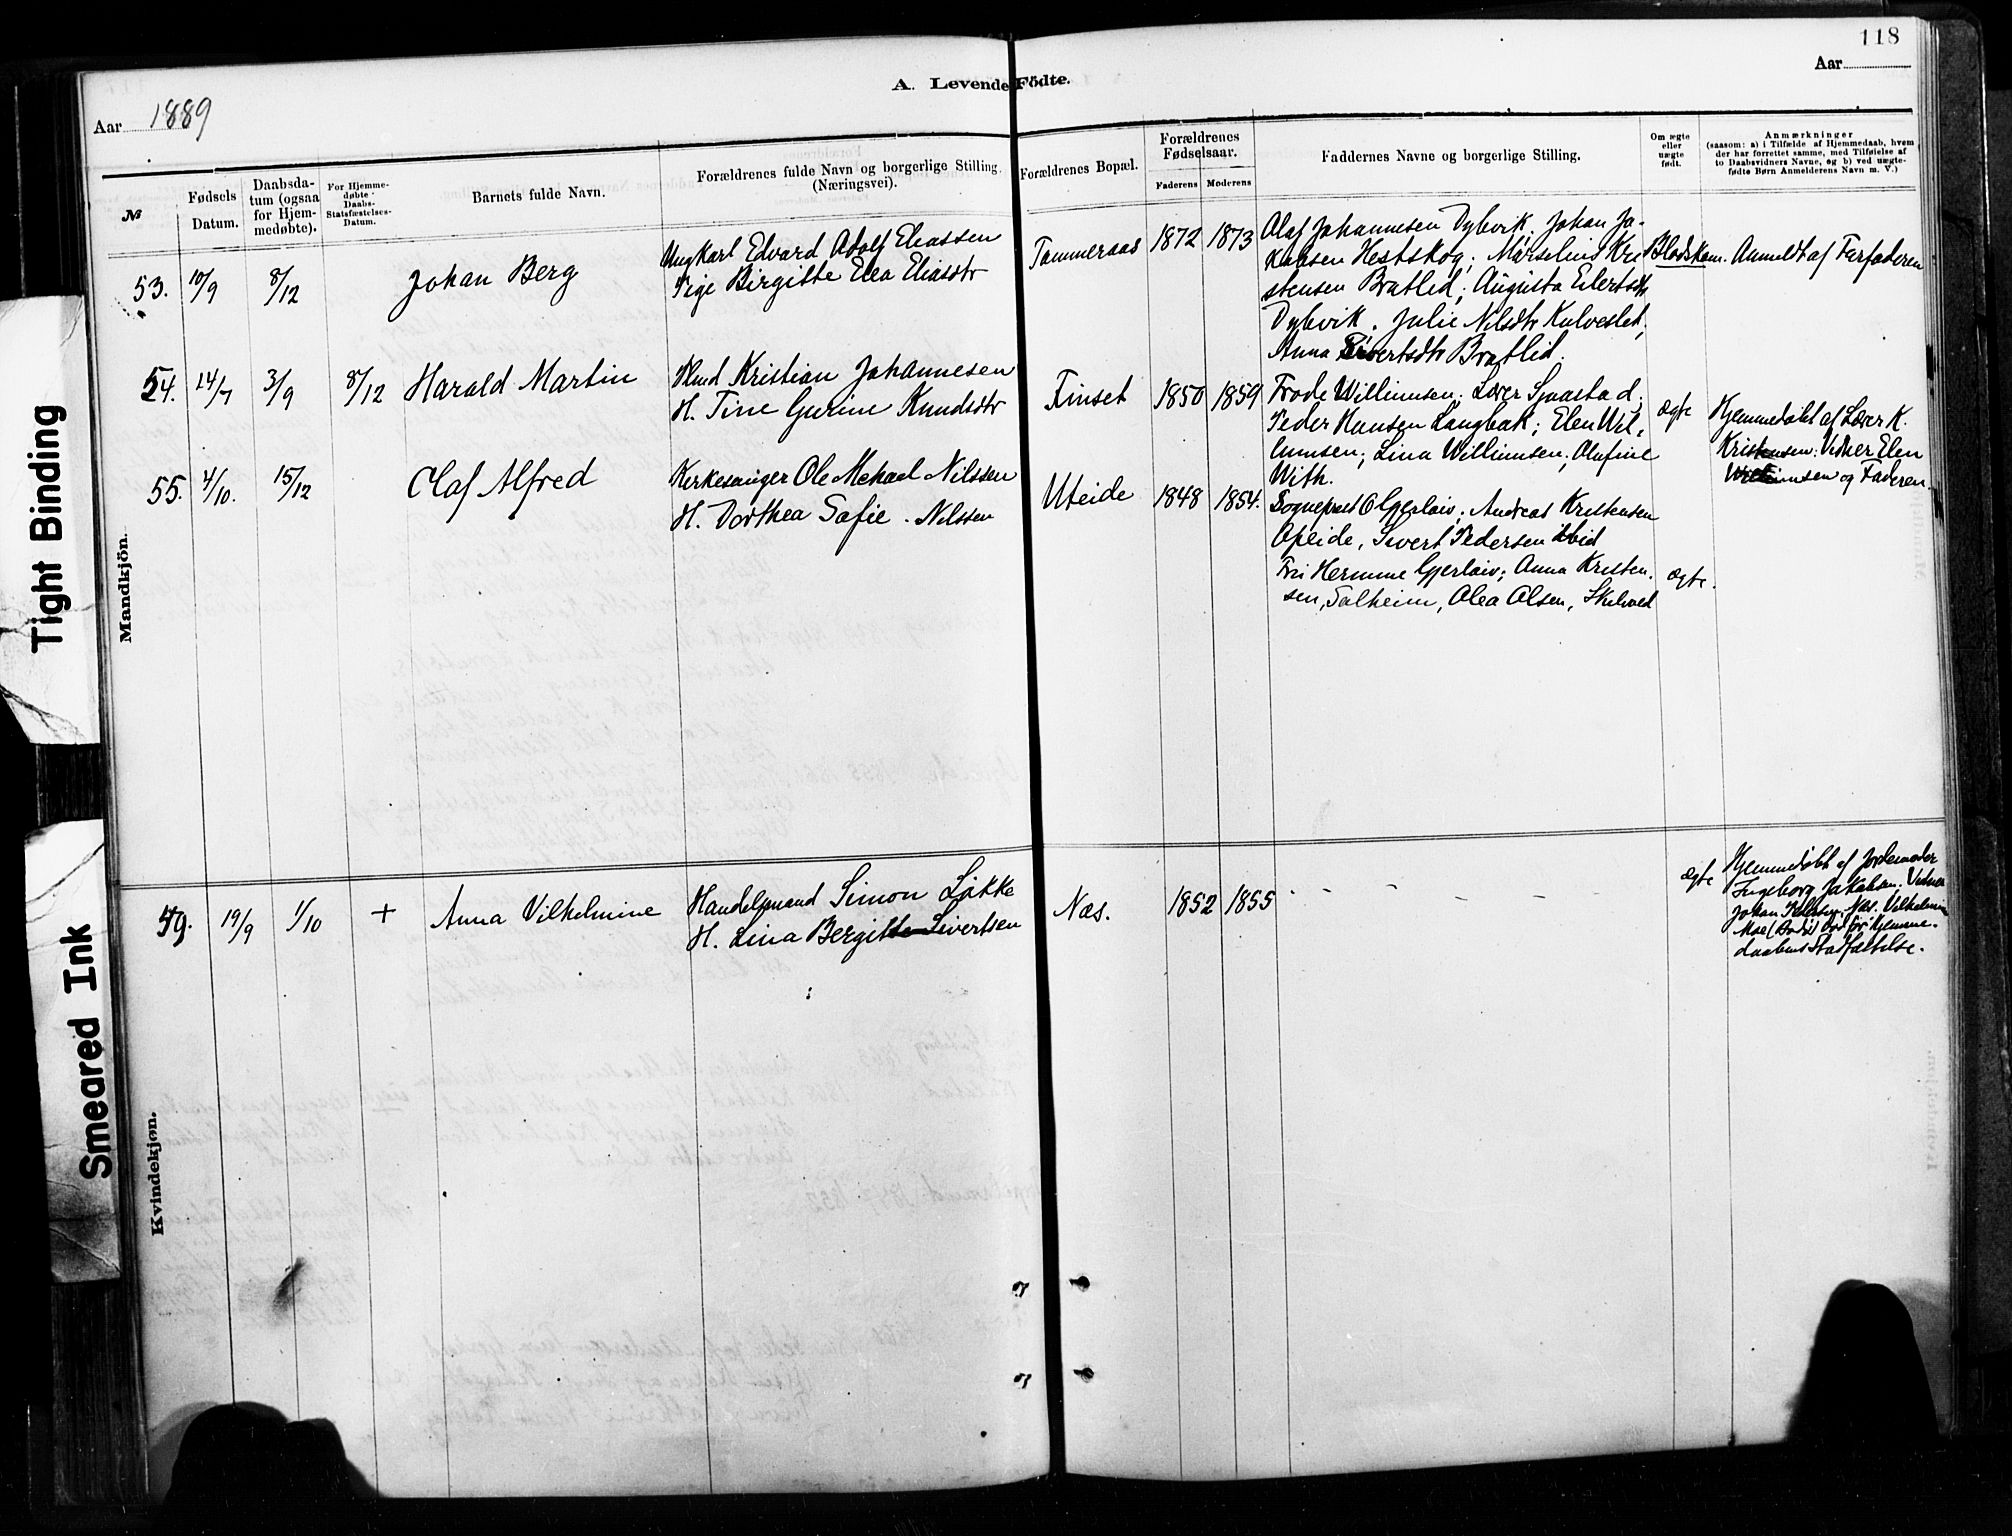 118
A. Levende Födte.
Aar
Aar 1889
№
Fødsels Datum.
Daabsdatum (ogsaa for Hjemmedøbte).
For Hjemmedøbte Daabs-Statsfæstelses-Datum.
Barnets fulde Navn.
Forældrenes fulde Navn og borgerlige Stilling. (Næringsvei).
Forældrenes Bopæl.
Forældrenes Fødselsaar.
Faderens
Moderens
Faddernes Navne og borgerlige Stilling.
Om ægte eller uægte født.
Anmærkninger
(saasom: a) i Tilfælde af Hjemmedaab, hvem
der har forrettet samme, med Tilføielse af
to Daabsvidners Navne, og b) ved uægte-
fødte Børn Anmelderens Navn m. V.)
Mandkjön.
53. 10/9 8/12 Johan Berg
Ungkarl Edvard Adolf Eliassen
Pige Birgitte Elea Eliasdtr
Tømmeraas 1872 1873
Olaf Johannesen Dybvik, Johan Ja-
kobsen Hestskog; Marselius Kri
stensen Bratlid; Augusta Eilertsdtr
Dybvik. Julie Nilsdtr Kalveslet,
Anna Sivertsdtr Bratlid.
Blodskam. Anmeldt af Farfaderen
54. 14/7 3/9 8/12 Harald Martin
Kristian Johannesen
H. Tine Gurine Knudsdtr
Finset 1850 1859
Frode Willumsen; Lærer Sjaastad;
Peder Hansen Langbak; Elen Wil-
lumsen; Lina Willumsen; Olufine
With.
ægte
Hjemmedøbt af Lærer K.
Kristensen: Vidner Elen
Willumsen og Faderen.
55. 4/10. 15/12 Olaf Alfred
Kirkesanger Ole Mekael Nilssen
H. Dorthea Sofie Nilssen
Uteide 1848 1854.
Sogneprest O Gjerløw; Andreas Kristensen
Opeide, Sivert Pedersen ibid
Gjerløw; Anna Kristen-
sen, Solheim, Olea Olsen, Skilvad
ægte.
Kvindekjön.
49. 19/9 1/10 + Anna Vilhelmine
Handelsmand Simon Løkke
H. Lina Bergitte Sivertsen
Næs. 1852 1855 - - - - -
ægte
Hjemmedøbt af Jordemoder
Ingeborg Jakobsen: Vidner
Johan Pedersen, Næs. Vilhelmine
Moe (Bodø) Død før Hjemme-
daabens Stadfæstelse.
Tight Binding
Smeared Ink